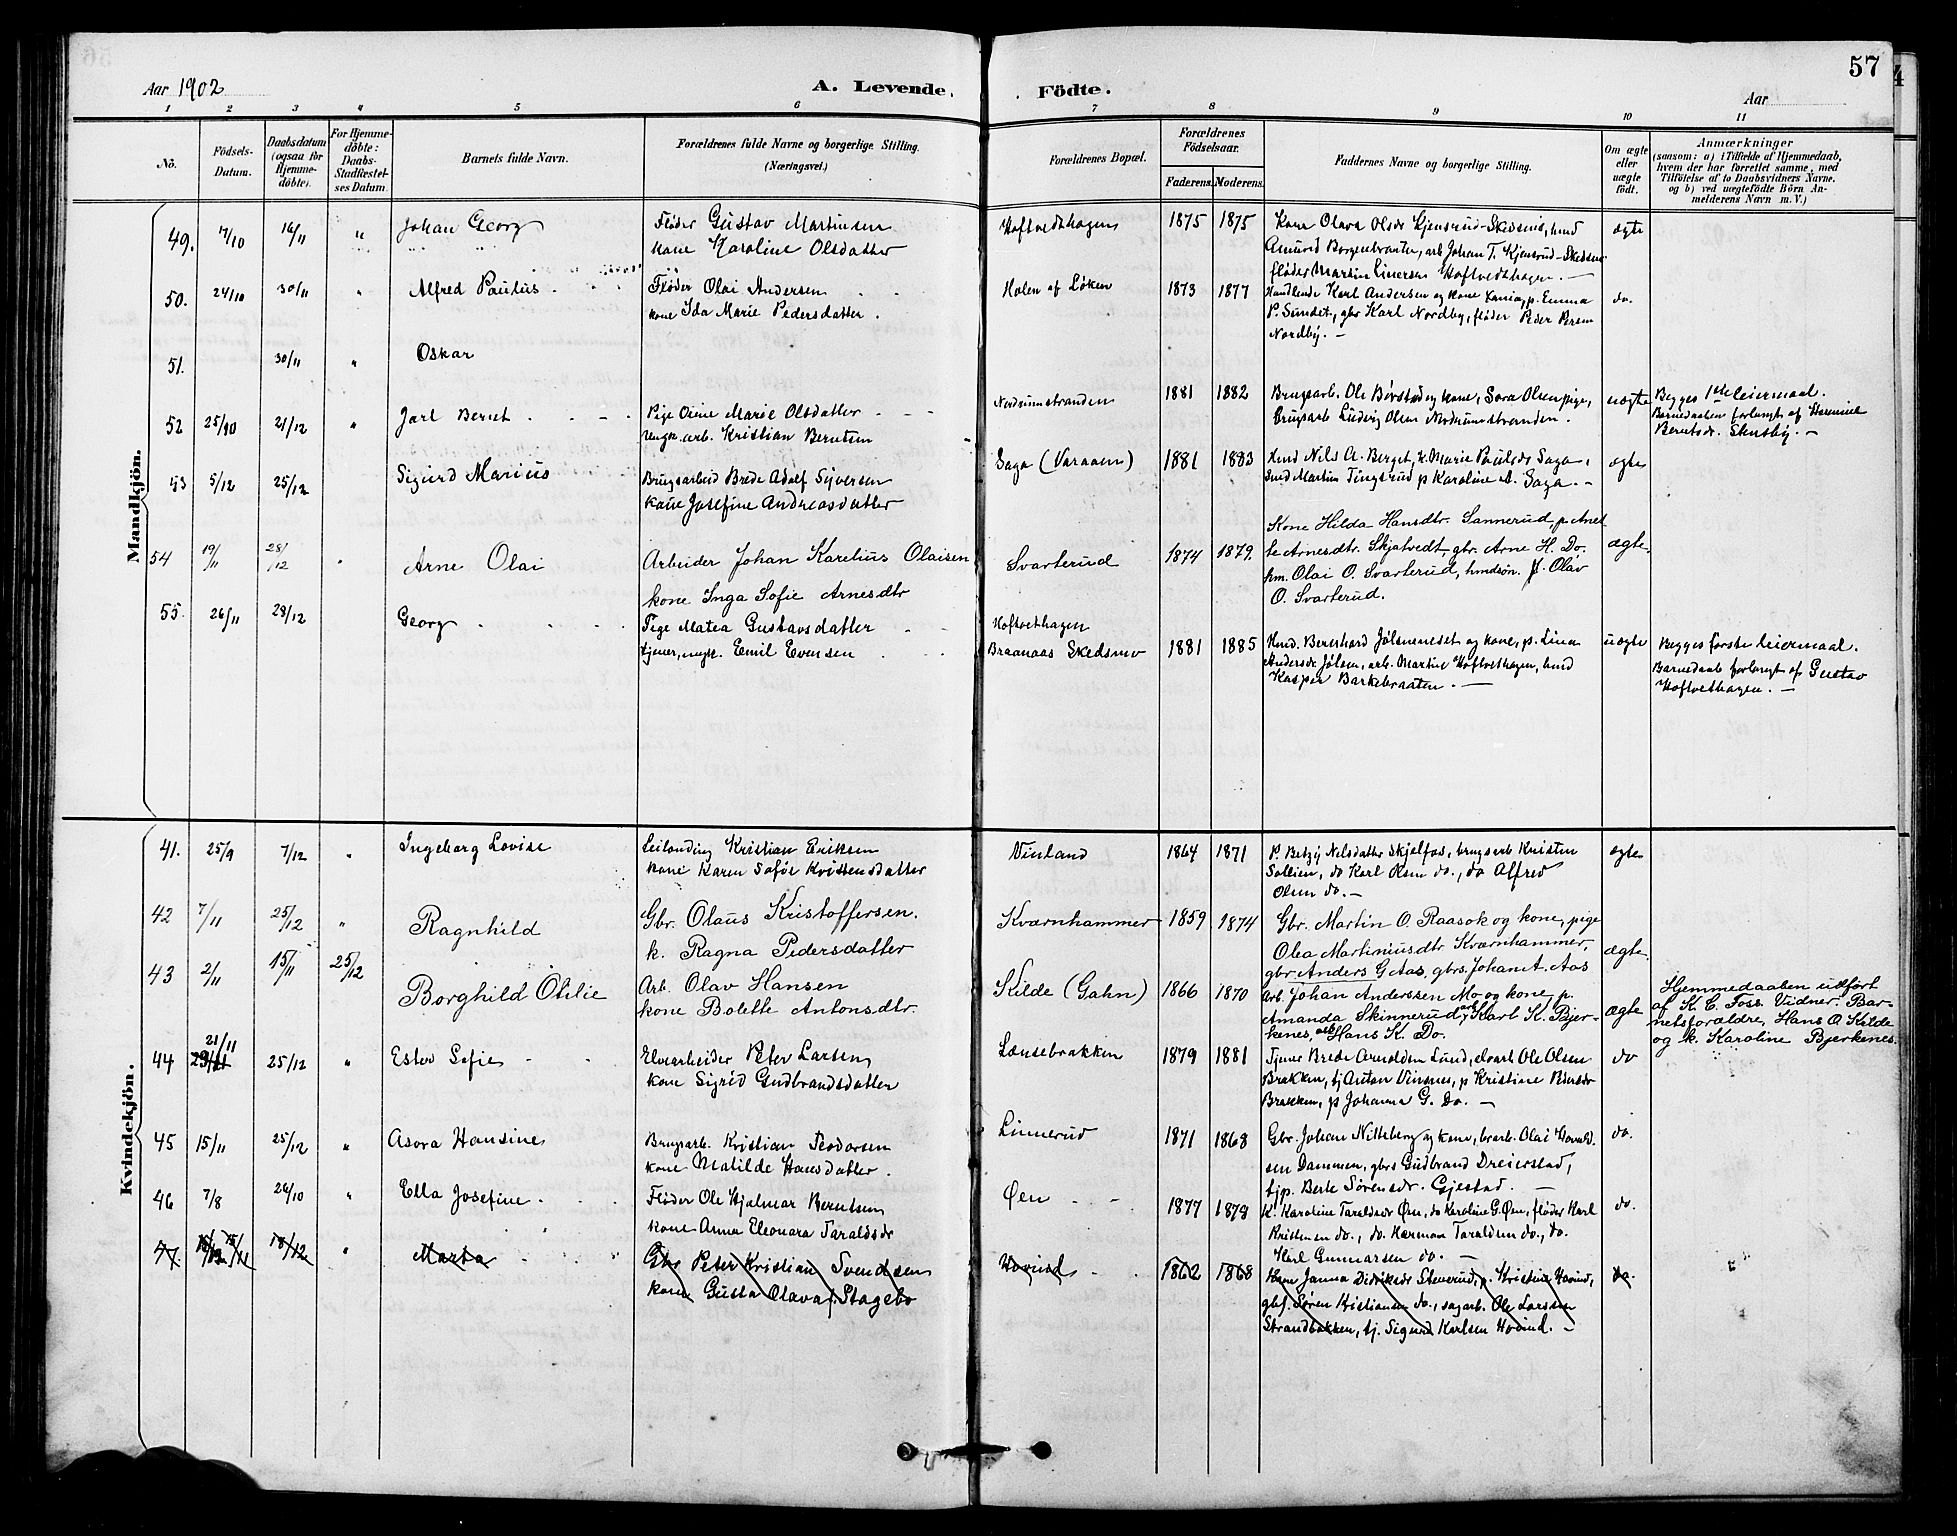 57
Aar 1902
A. Levende.
Födte.
Aar
1 2 3 4 5 6 7 8 9 10 11
No. Födsels-Datum. Daabsdatum (ogsaa for Hjemme-döbte). For Hjemme-döbte: Daabs-Stadfestel-ses Datum. Barnets fulde Navn. Forældrenes fulde Navne og borgerlige Stilling. (Næringsvei.) Forældrenes Bopæl. Forældrenes Födselsaar. Faderens. Moderens. Faddernes Navne og borgerlige Stilling. Om ægte eller uægte födt. Anmærkninger (saasom: a) i Tilfælde af Hjemmedaab, hvem der har forrettet samme, med Tilföielse af to Daabsvidners Navne. og b) ved uægtefödte Börn An-melderens Navn m. V.)
Mandkjön.
49. 7/10 16/11 " Johan Georg Fløder Gustav Martinsen Hoftvedthagen 1875 1875 Kone Olava Olsdr Kjensrud-Skedsmo, hmd ægte
kone Karoline Olsdatter Amund Borgenbraaten, arb. Johan T. Kjensrud-Skedsmo
fløder Martin Hoftvedthagen. —
50. 24/10 30/11 " Alfred Paulus Fløder Olai Andersen Holen af Løken 1873 1877 Handlende Karl Andersen og kone p. Emma do.
kone Ida Marie Pedersdatter. P. Sundet, gbr Karl Nordby, fløder Peder
Nordby. —
51. 30/11 " Oskar
52 25/10 21/12 " Jarl Bernt Pige Marie Olsdatter Nordsumstranden 1881 1882 Brugsarb. Ole og kone, Olsen pige, uægte Begges 1ste leiermaal.
Ungk. arb. Kristian Berntsen brugsarb Ludvig Olsen Nordsumstranden. Barnedaaben forlangt af
Berntsdr. —
53 5/12 25/12 Sigurd Marius Brugsarbeid Brede Adolf Syversen Saga (Varaaen) 1881 1883 Hmd Nils A. Berget, k. Marie Paulsdr Saga, ægte
kone Josefine Andreasdatter hmd Martin Tingsrud p Karoline A. Saga. —
54 19/11 28/12 " Arne Olai Arbeider Johan Karelius Olaisen Svarterud 1874 1879. Kone Hilda Hansdtr. Sannerud, p. Anet ægte.
kone Inga Sofie Arnesdtr te Arnesdtr. Skjatvedt, gbr. Arne H. Do.
hm. Olai O. Svarterud, hmdsøn. Olav
O. Svarterud.
55. 26/11 28/12 Georg Pige Matea Gustavsdatter Hoftvethagen
tjener, ungk. Emil Evensen Braanaas Skedsmo 1881 1885 Hmd. Bernhard Jølsenneset og kone, p. Lina uægte Begges første leiermaal.
Andersdr Jølsen, arb. Martin Hoftvethagen, hmd Barnedaab forlangt af Gustav
Kasper Barkebraaten. — Hoftvethagen. —
Kvindekjön.
41. 25/9 7/12 " Ingeborg Lovise Leilending Kristian Eriksen Vinland 1864 1871 P. Betzy Nilsdatter Skjelfos, brugsarb Kristen ægte
kone Karen Sofie Kristensdatter Sollien, do Karl Olsen do., do Alfred
Olsen do. —
42 7/11 25/12 " Ragnhild Gbr. Olaus Kristoffersen. Kværnhammer 1859 1874 Gbr. Martin O. Raasok og kone, pige
k. Ragna Pedersdatter Olea Martiniusdtr Kværnhammer, ægte.
gbr Anders G Aas, gbrs. Johan A. Aas
43 2/11 15/11 25/12 Borghild Otilie Arb. Olav Hansen Kilde (Gahn) 1866 1870 Arb. Johan Anderssen Mo og kone, p. Hjemmedaaben udført
kone Bolette Antonsdtr. Amanda Skinnerud, arb. Karl K. Bjer- ægte af K. E. Foss. Vidner. Bar-
kenes, arb. Hans K. Do. netsforældre, Hans O. Kilde
og k. Karoline Bjerkenes.
44 21/11 25/12 " Ester Sofie Elvearbeider Peter Larsen Lænsebrakken 1879 1881 Tjener Brede Arnoldsen Lund, elvarb Ole Olsen do
kone Sigrid Gudbrandsdatter Brakken, tj Anton Vinsnes, p Kristine Pedersdr
Brakken, p Johanna G. Do. —
45 15/11 25/12 " Asora Hansine Brugsarb. Kristian Teodorsen Linnerud 1871 1868 Gbr. Johan Nitteberg og kone, brarb. Olai Harald- do.
kone Matilde Hansdatter. sen Dammen, gbrs Gudbrand Dreierstad,
tjp. Berte Sørensdr. Gjestad. —
46 7/8 26/10 " Ella Josefine Fløder Ole Hjalmar Berntsen Øen 1877 1879 K. Karoline Taraldsdr Øen, do Karoline G. Øen, fløder Karl do.
kone Anna Eleonara Taraldsdr Kristensen do., do. Herman Taraldsen do., do.
Karl Gunnarsen do. —
47. 15/11 18/12 " Marta Gbr Peter Kristian Svendsen Hovind 1862 1868 Kone Janna Didriksdr Stenerud, p. Kristine Hovind, do.
kone Gusta Olava f. Stagebo gbs. Søren Kristiansen do., sagarb. Ole Larssen
Strandbakken, tj. Sigurd Karlsen Hovind. —